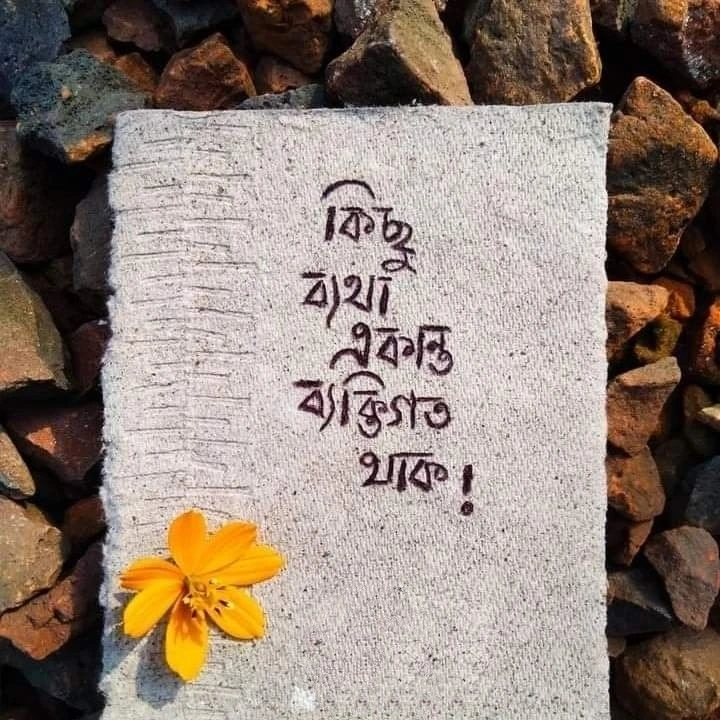 কিছু
ব্যথা
একান্ত
ব্যক্তিগত
থাক!